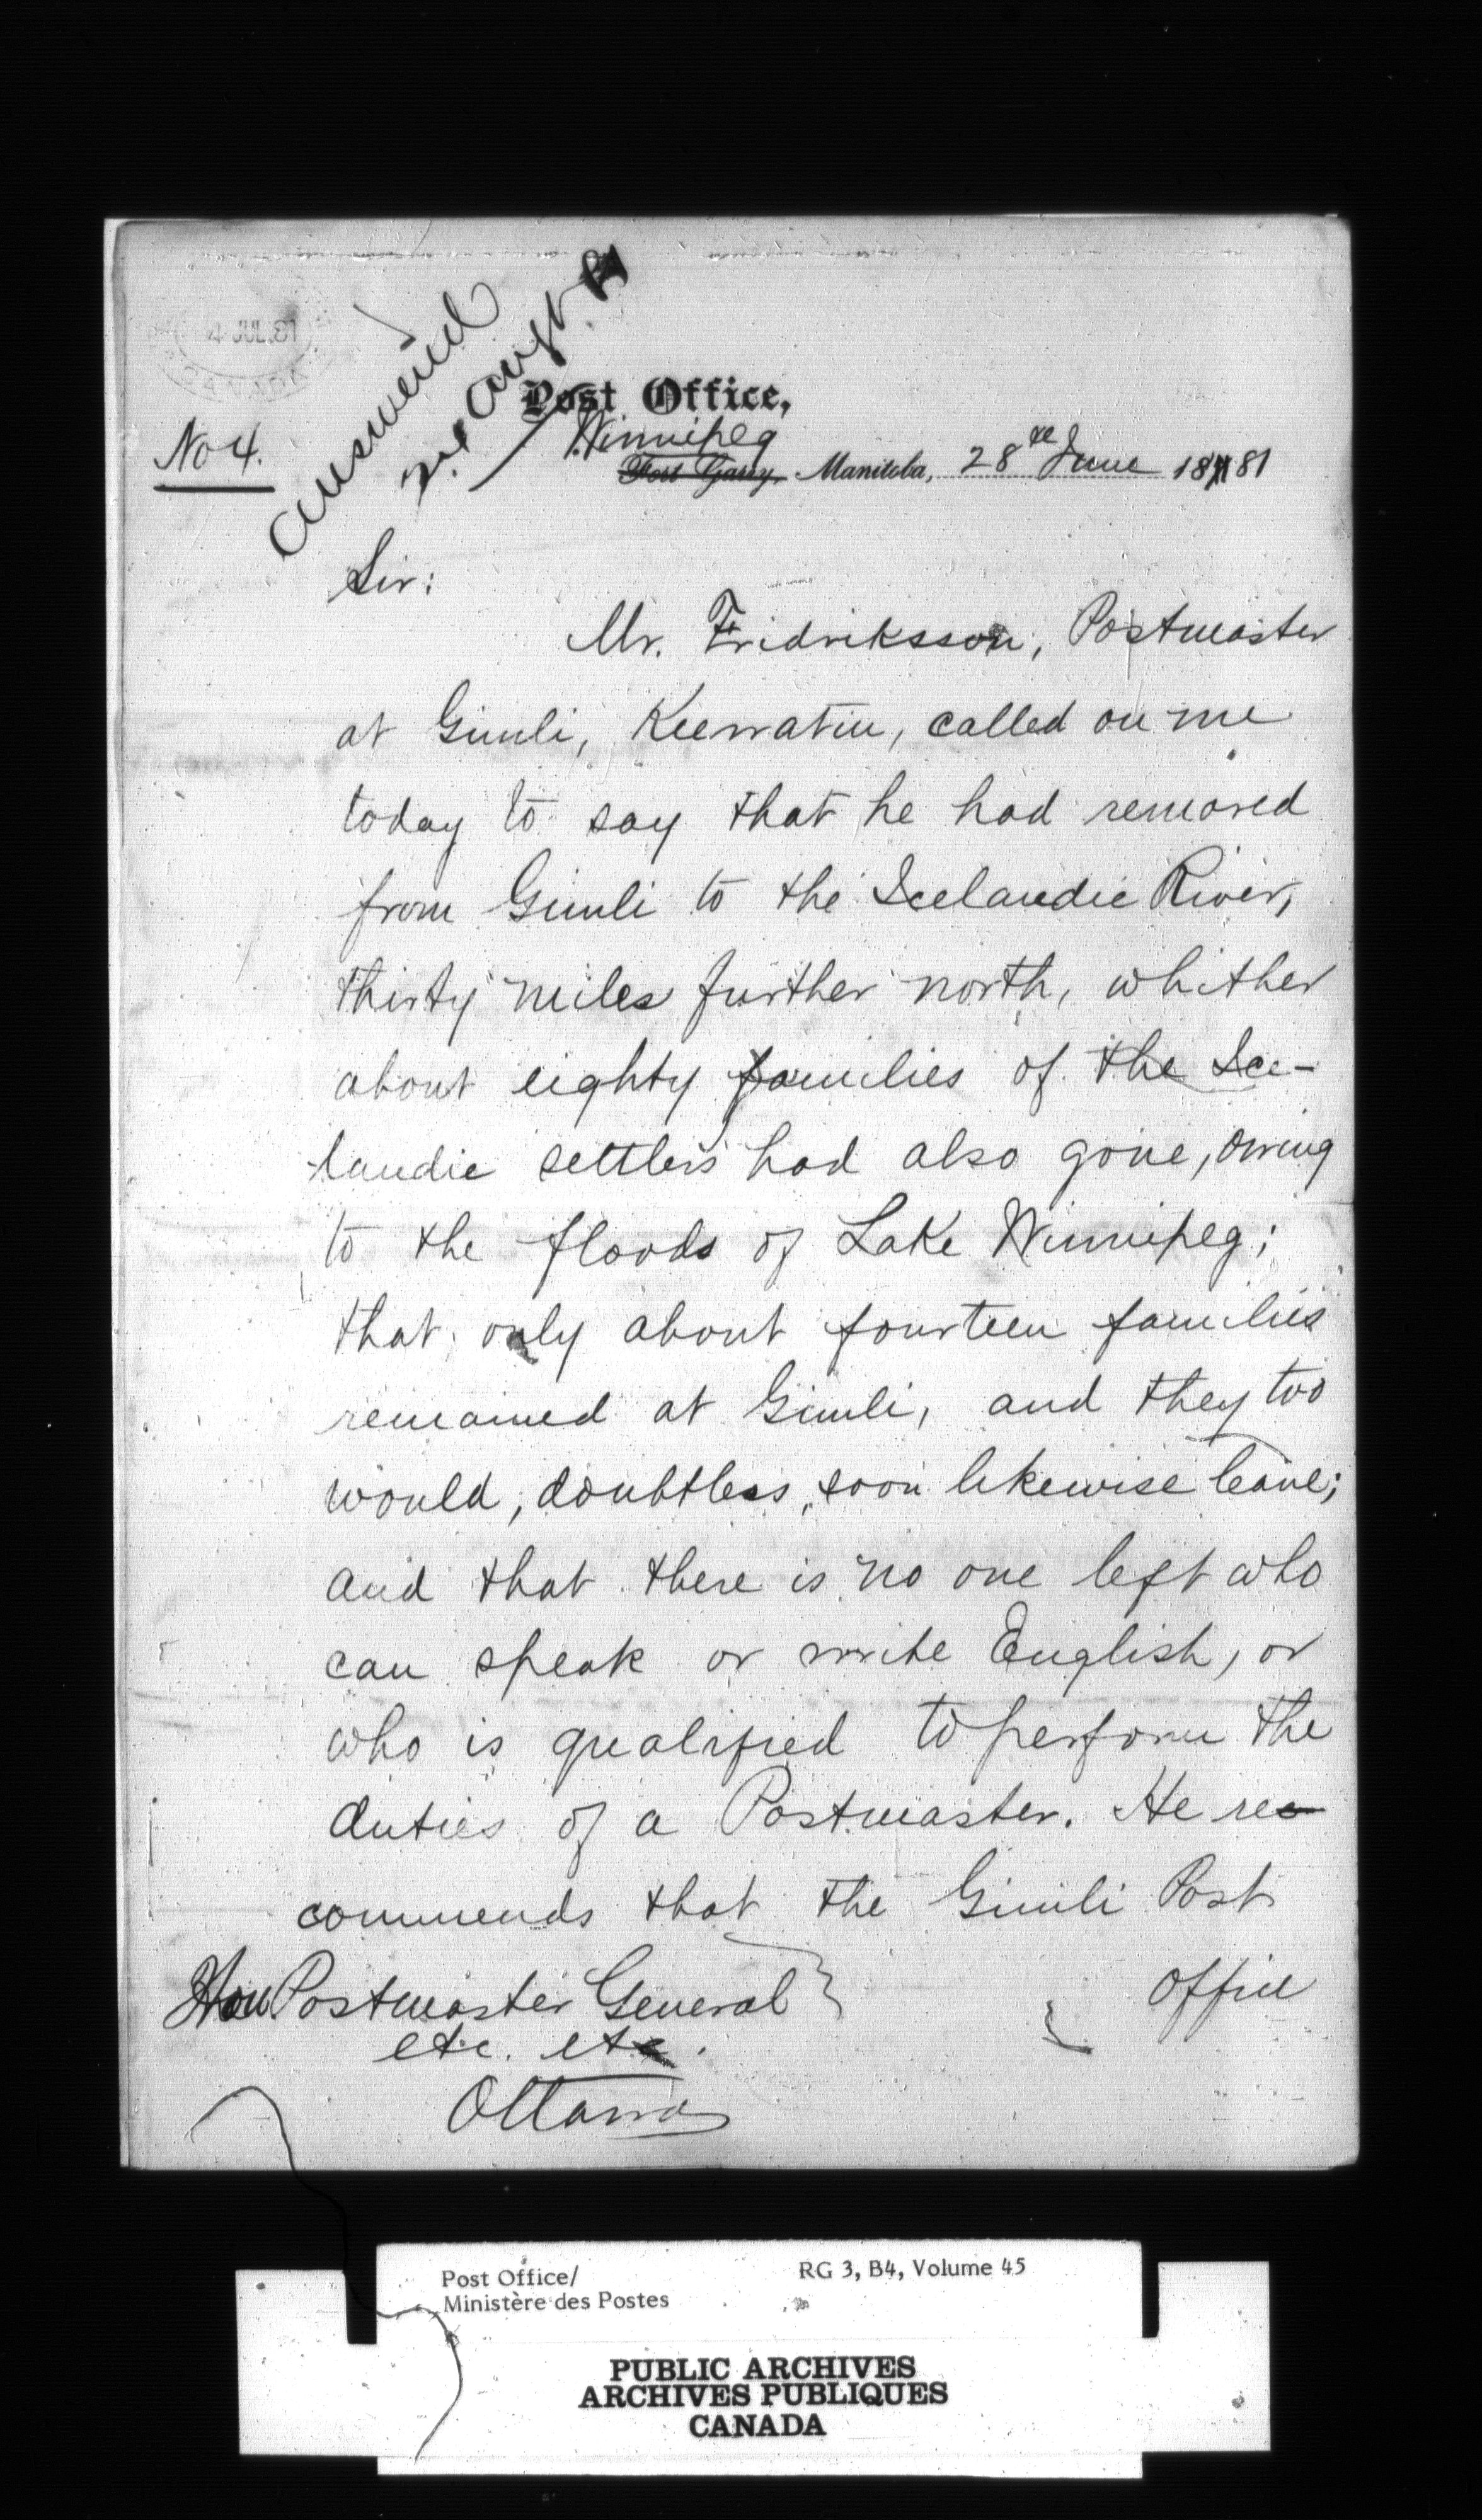 4 JUL.81
CANADA
Answered
2nd Augt 81
Post Office,
No 4.
Winnipeg
Fort Garry, Manitoba, 28th June 1881
Sir:
Mr. Fridriksson, Postmaster
at Gimli, Keewatin, called on me
today to say that he had removed
from Gimli to the Icelandic River,
thirty miles further north, whither
about eighty families of the Ice-
landic settlers had also gone, owing
to the floods of Lake Winnipeg;
that only about fourteen families
remained at Gimli, and they too
would, doubtless, soon likewise leave;
and that there is no one left who
can speak or write English, or
who is qualified to perform the
duties of a Postmaster. He re-
commends that the Gimli Post
Office
Hon. Postmaster General
etc. etc.
Ottawa
Post Office/
Ministère des Postes
RG 3, B4, Volume 45
PUBLIC ARCHIVES
ARCHIVES PUBLIQUES
CANADA